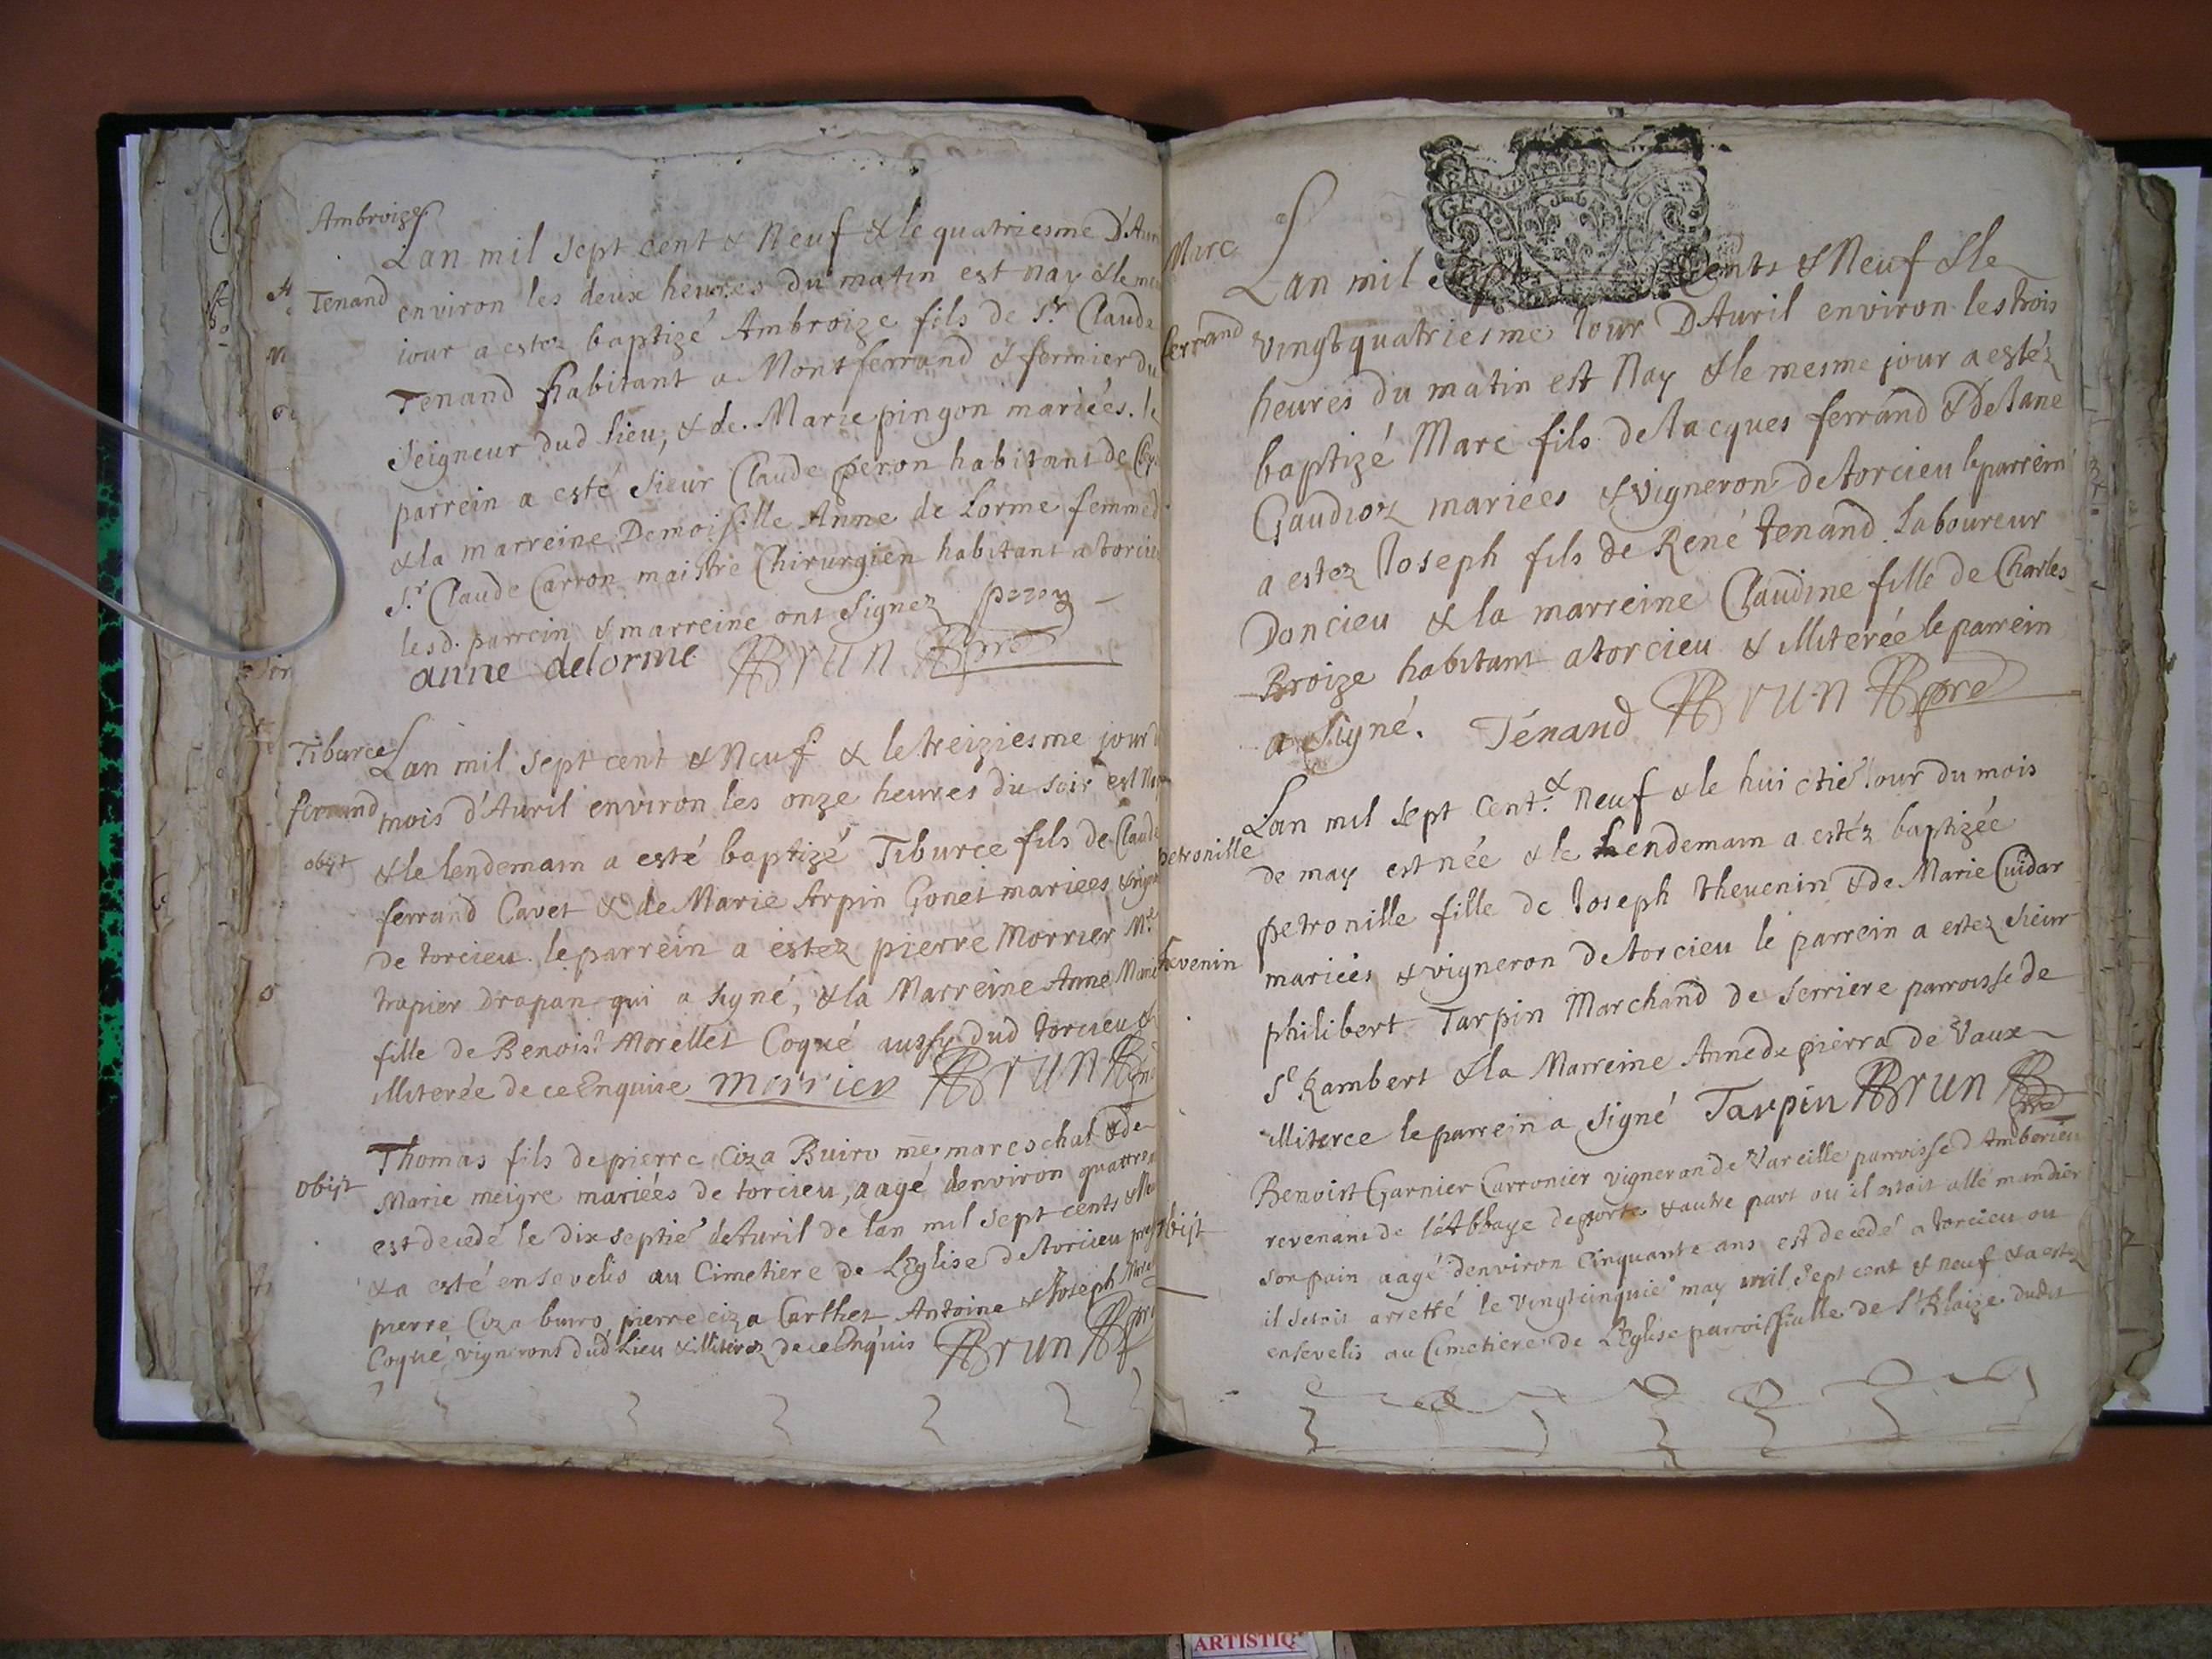 Ambroize
Lan mil sept cent & Neuf & le quatriesme D'Auri
Tenand
environ les deux heures du matin est nay & le me
iour a estez baptizé Ambroize fils de Sr. Claude
Tenand habitant a Montferrand & fermier du
Seigneur dud lieu, & de Marie pingon mariées. le
parrein a esté Sieur Claude peron habitant de
& la marreine Demoiselle Anne de Lorme femme d
Sr. Claude Carron maistre Chirurgien habitant a torcieu
lesd. parrein & marreine ont Signez peron
anne delorme Brun pre
Tiburce
Lan mil sept cent & Neuf & le treiziesme jour d
ferrand
mois d'Auril environ les onze heures du soir est Nay
obijt
& le lendemain a esté baptizé Tiburce fils de Claude
ferrand Cavet & de Marie Arpin Gonet mariees & vigne
de torcieu. le parrein a estez pierre Morrier Me
trapier drapan qui a signé, & la Marreine Anne Marie
fille de Benoist Morellet Coqué aussy dud torcieu &
illiterée de ce Enquise morrier Brun pre
Thomas fils de pierre Ciza Buiro me mareschal & de
obijt
Marie meigre mariées de torcieu, aagé denviron quattre
est decedé le dix septie d'Auril de lan mil sept cents & Neu
& a esté ensevelis au Cimetiere de LEglise de torcieu
pierre Ciza buiro, pierre ciza Carthet Antoine & Joseph
Coqué vignerons dud Lieu & illiterez de ce Enquis Brun pre
Marc
Lan mil Sept Cents & Neuf & le
ferrand
vingt quatriesme Iour D'Auril environ les trois
heures du matin est Nay & le mesme jour a estéz
baptizé Marc fils de Iacques ferrand & De Iane
Gaudioz mariées & vigneron de torcieu le parrein
a estez Ioseph fils de René tenand Laboureur
Doncieu & la marreine Claudine fille de Charles
Broize habitant a torcieu & illiterée le parrein
a signé. Ténand Brun pre
Lan mil sept Cent & Neuf & le huictie Iour du mois
petronille
de may est née & le Lendemain a estéz baptizée
petronille fille de Ioseph thevenin & de Marie Cuidar
thevenin
mariées & vigneron de torcieu le parrein a estez Sieur
philibert Tarpin Marchand de serriere parroisse de
St Rambert & la Marreine Anne de pierra de Vaux
illiterée le parrein a signé Tarpin Brun pre
Benoist Garnier Carronier vigneron de Vareille parroisse d'Amberieu
revenant de l'Abbaye de porte & autre part ou il estoit allé mandier
obijt
son pain aagé denviron Cinquante ans est decedé a torcieu ou
il sestoit arretté le vingt cinquie may mil sept cent & neuf & a estz
ensevelis au Cimetiere de LEglise parroissialle de St Blaize dudit
ARTISTIQ